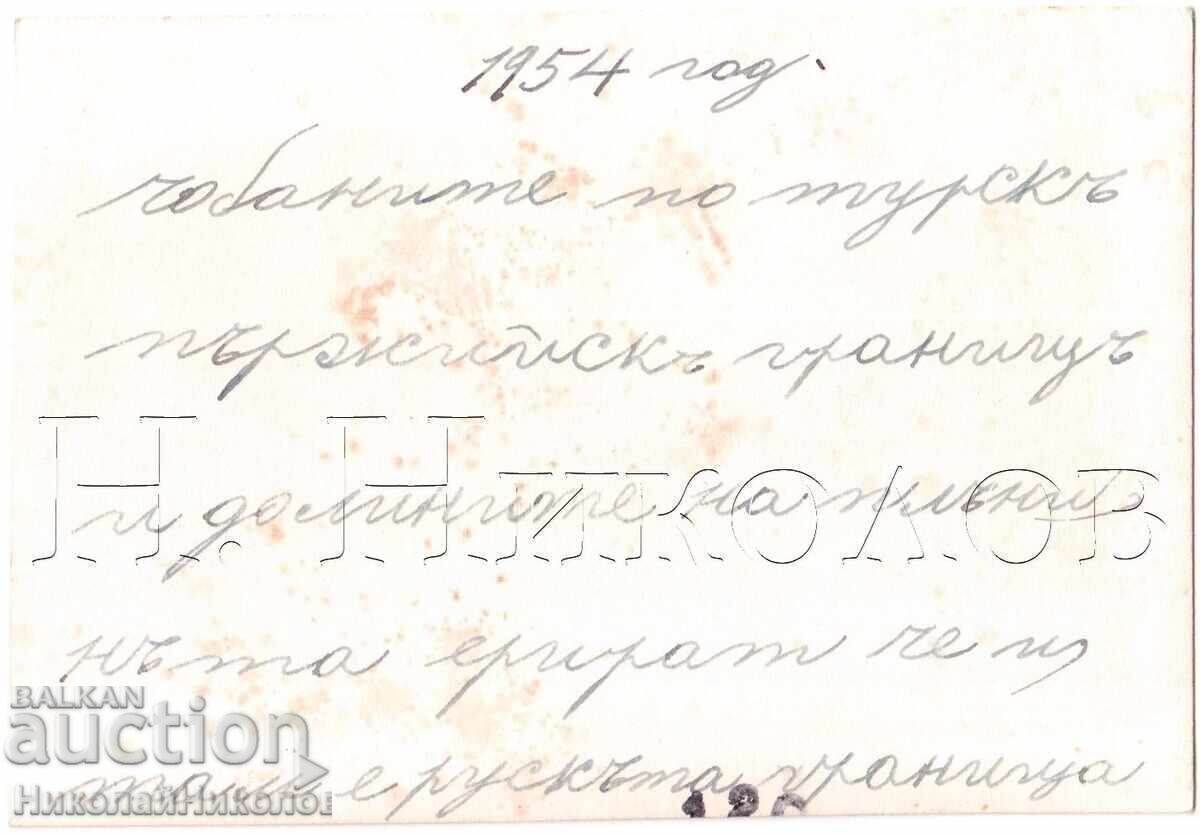 1954 год.
чобаните по турскъ
пържийскъ границъ
и долините на
Н. Николов
нъта ерират че и
там е рускъта граница
BALKAN
auction
НиколайНиколов
126